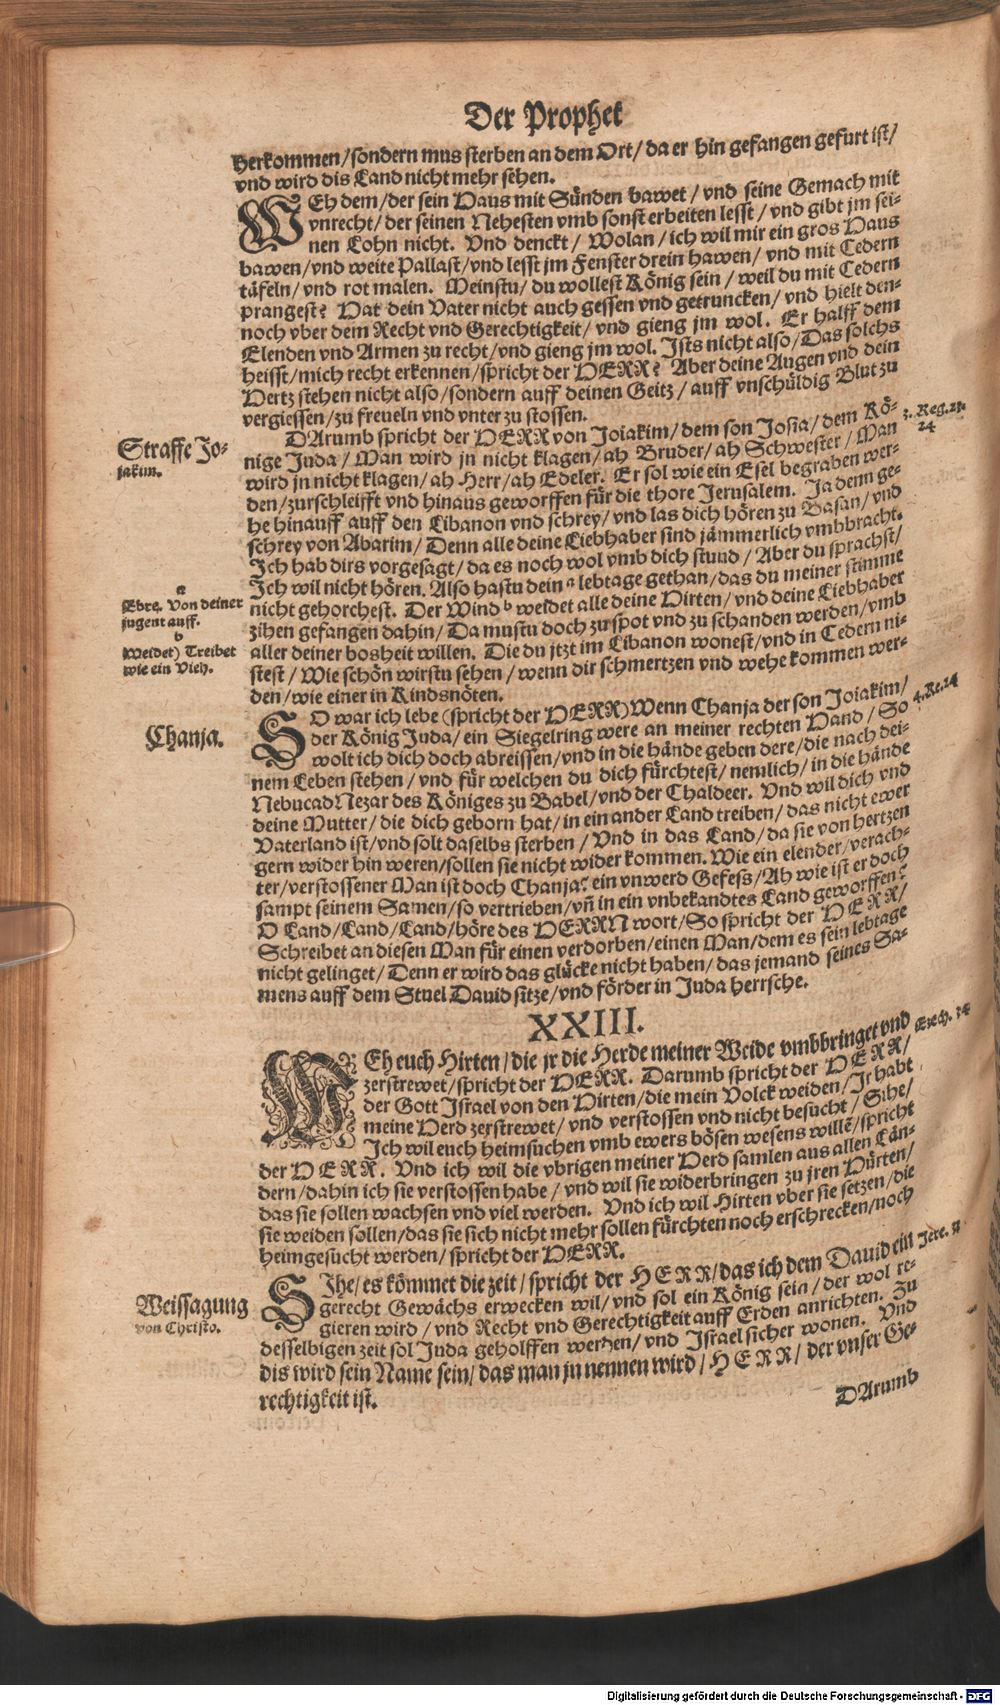 Der Prophet
herkommen/sondern mus sterben an dem Ort/ da er hin gefangen gefurt ist/
vnd wird dis Land nicht mehr sehen.
WEh dem/der sein Haus mit Sünden bawet / vnd seine Gemach mit
vnrecht/der seinen Nehesten vmb sonst erbeiten lesst / vnd gibt jm sei-
nen Lohn nicht. Vnd denckt/ Wolan/ich wil mir ein gros Haus
bawen/vnd weite Pallast/vnd lesst jm Fenster drein hawen/ vnd mit Cedern
täfeln/vnd rot malen. Meinstu/du wollest König sein / weil du mit Cedern
prangest? Hat dein Vater nicht auch gessen vnd getruncken/ vnd hielt den-
noch vber dem Recht vnd Gerechtigkeit/ vnd gieng jm wol. Er halff dem
Elenden vnd Armen zu recht/vnd gieng jm wol. Ists nicht also/Das solchs
heisst/mich recht erkennen/spricht der HERR? Aber deine Augen vnd dein
Hertz stehen nicht also/sondern auff deinen Geitz/ auff vnschüldig Blut zu
vergiessen/zu freueln vnd vnter zu stossen.
Straffe Jo-
jakim.
DArumb spricht der HERR von Joiakim/dem son Josia/dem Kö-
3. Reg. 23.
24
nige Juda / Man wird jn nicht klagen/ah Bruder/ah Schwester / Man
wird jn nicht klagen/ah Herr/ah Edeler. Er sol wie ein Esel begraben wer-
den/zurschleifft vnd hinaus geworffen für die thore Jerusalem. Ja denn ge-
he hinauff auff den Libanon vnd schrey/vnd las dich hören zu Basan/vnd
schrey von Abarim/Denn alle deine Liebhaber sind jämmerlich vmbbracht.
Ich hab dirs vorgesagt/da es noch wol vmb dich stund / Aber du sprachst/
Ich wil nicht hören. Also hastu dein a lebtage gethan/das du meiner stimme
nicht gehorchest. Der Wind b weidet alle deine Hirten/vnd deine Liebhaber
zihen gefangen dahin/Da mustu doch zu spot vnd zu schanden werden/vmb
aller deiner bosheit willen. Die du jtzt im Libanon wonest/vnd in Cedern ni-
stest / Wie schön wirstu sehen / wenn dir schmertzen vnd wehe kommen wer-
den/wie einer in Kindsnöten.
a
Ebre. Von deiner
jugent auff.
b
Weidet) Treibet
wie ein Vieh.
Chanja.
SO war ich lebe (spricht der HERR) Wenn Chanja der son Joiakim/
4. Re. 24
der König Juda/ein Siegelring were an meiner rechten Hand / So
wolt ich dich doch abreissen/vnd in die hände geben dere/die nach dei-
nem Leben stehen / vnd für welchen du dich fürchtest/ nemlich/in die hände
NebucadNezar des Königes zu Babel/vnd der Chaldeer. Vnd wil dich vnd
deine Mutter/die dich geborn hat/in ein ander Land treiben/das nicht ewer
Vaterland ist/vnd solt daselbs sterben / Vnd in das Land/da sie von hertzen
gern wider hin weren/sollen sie nicht wider kommen. Wie ein elender/verach-
ter/verstossener Man ist doch Chanja? ein vnwerd Gefess/Ah wie ist er doch
sampt seinem Samen/so vertrieben/vñ in ein vnbekandtes Land geworffen?
O Land/Land/Land/höre des HERRN wort/So spricht der HERR/
Schreibet an diesen Man für einen verdorben/einen Man/dem es sein lebtage
nicht gelinget/Denn er wird das glücke nicht haben/das jemand seines Sa-
mens auff dem Stuel Dauid sitze/vnd förder in Juda herrsche.
XXIII.
WEh euch Hirten/die jr die Herde meiner Weide vmbbringet vnd
Ezech. 34
zerstrewet/spricht der HERR. Darumb spricht der HERR/
der Gott Israel von den Hirten/die mein Volck weiden/Jr habt
meine Herd zerstrewet/ vnd verstossen vnd nicht besucht / Sihe/
Ich wil euch heimsuchen vmb ewers bösen wesens willē/spricht
der HERR. Vnd ich wil die vbrigen meiner Herd samlen aus allen Län-
dern/dahin ich sie verstossen habe / vnd wil sie widerbringen zu jren Hürten/
das sie sollen wachsen vnd viel werden. Vnd ich wil Hirten vber sie setzen/die
sie weiden sollen/das sie sich nicht mehr sollen fürchten noch erschrecken/noch
heimgesucht werden/spricht der HERR.
Weissagung
von Christo.
SIhe/es kömmet die zeit/spricht der HERR/das ich dem Dauid ein
gerecht Gewächs erwecken wil/vnd sol ein König sein/der wol re-
gieren wird / vnd Recht vnd Gerechtigkeit auff Erden anrichten. Zu
desselbigen zeit sol Juda geholffen werden/vnd Israel sicher wonen. Vnd
dis wird sein Name sein/das man jn nennen wird/HERR/ der vnser Ge-
rechtigkeit ist.
DArumb
Digitalisierung gefördert durch die Deutsche Forschungsgemeinschaft - DFG